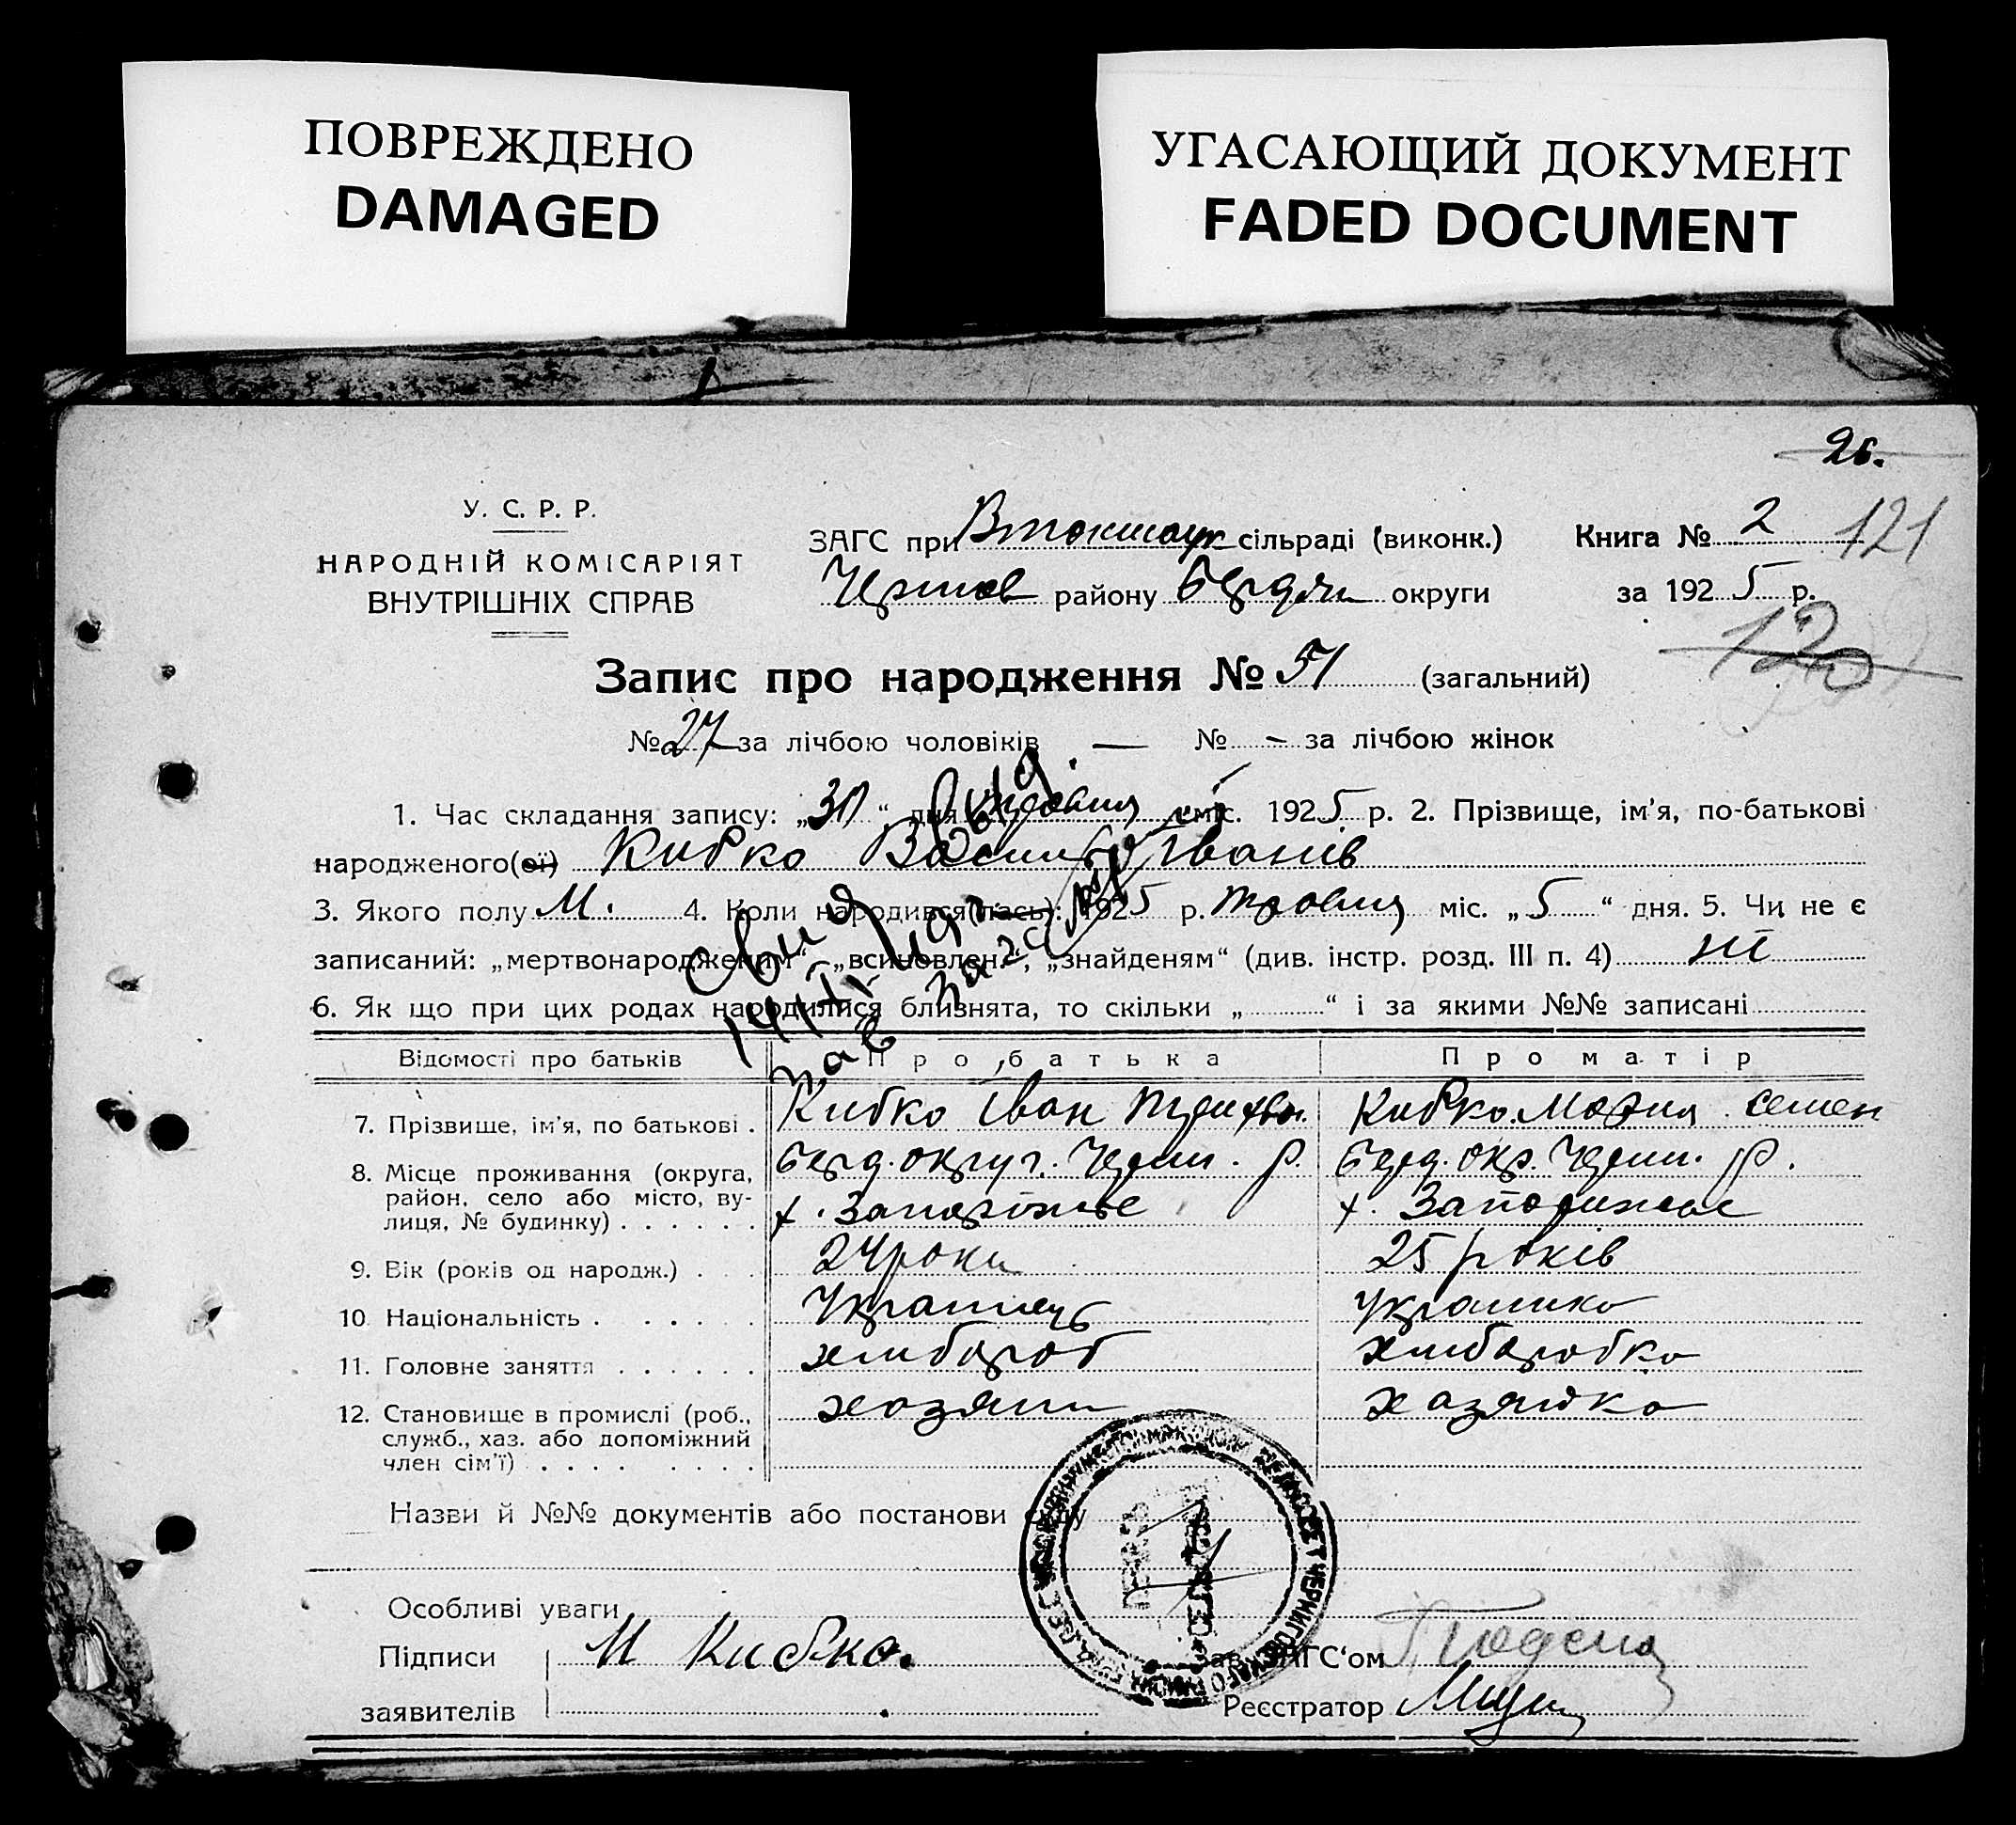 ПОВРЕЖДЕНО
DAMAGED
УГАСАЮЩИЙ ДОКУМЕНТ
FADED DOCUMENT
26.
У. С. Р. Р.
НАРОДНІЙ КОМІСАРІЯТ
ВНУТРІШНІХ СПРАВ
ЗАГС при Втокмаук сільраді (виконк.)
Книга № 2
121
району Бердян округи
за 1925 р.
120
Запис про народження № 51 (загальний)
№ 27 за лічбою чоловіків — № - за лічбою жінок
1. Час складання запису: „30“ дня міс. 1925 р. 2. Прізвище, ім'я, по-батькові
народженого(ої) Кибко Василь Іванів
3. Якого полу М. 4. Коли народився(лась): 1925 р. травня міс. „5“ дня. 5. Чи не є
записаний: „мертвонародженим“, „всиновлен.“, „знайденям“ (див. інстр. розд. III п. 4) ні
6. Як що при цих родах народилися близнята, то скільки „ “ і за якими №№ записані
Відомості про батьків
Про батька
Про матір
7. Прізвише, ім'я, по батькові .
Кибко Іван
Кибко Мария Семен
8. Місце проживання (округа,
район, село або місто, ву-
лиця, № будинку) . . . . . .
Берд. округ. Черниг. р.
х. Запоріжье
Берд. окр. Черниг. р.
х. Запорижье
9. Вік (років од народж.) . . .
24 роки
25 років
10. Національність . . . . . .
Українець
Українка
11. Головне заняття . . . . . .
хлибороб
хлиборобка
12. Становище в промислі (роб.,
служб., хаз. або допоміжний
член сім'ї) . . . . . . . . .
хозяин
хазяйка
Назви й №№ документів або постанови суду
Особливі уваги
Підписи
заявителів
И Кибко.
Зав. ЗАГС'ом
Реєстратор